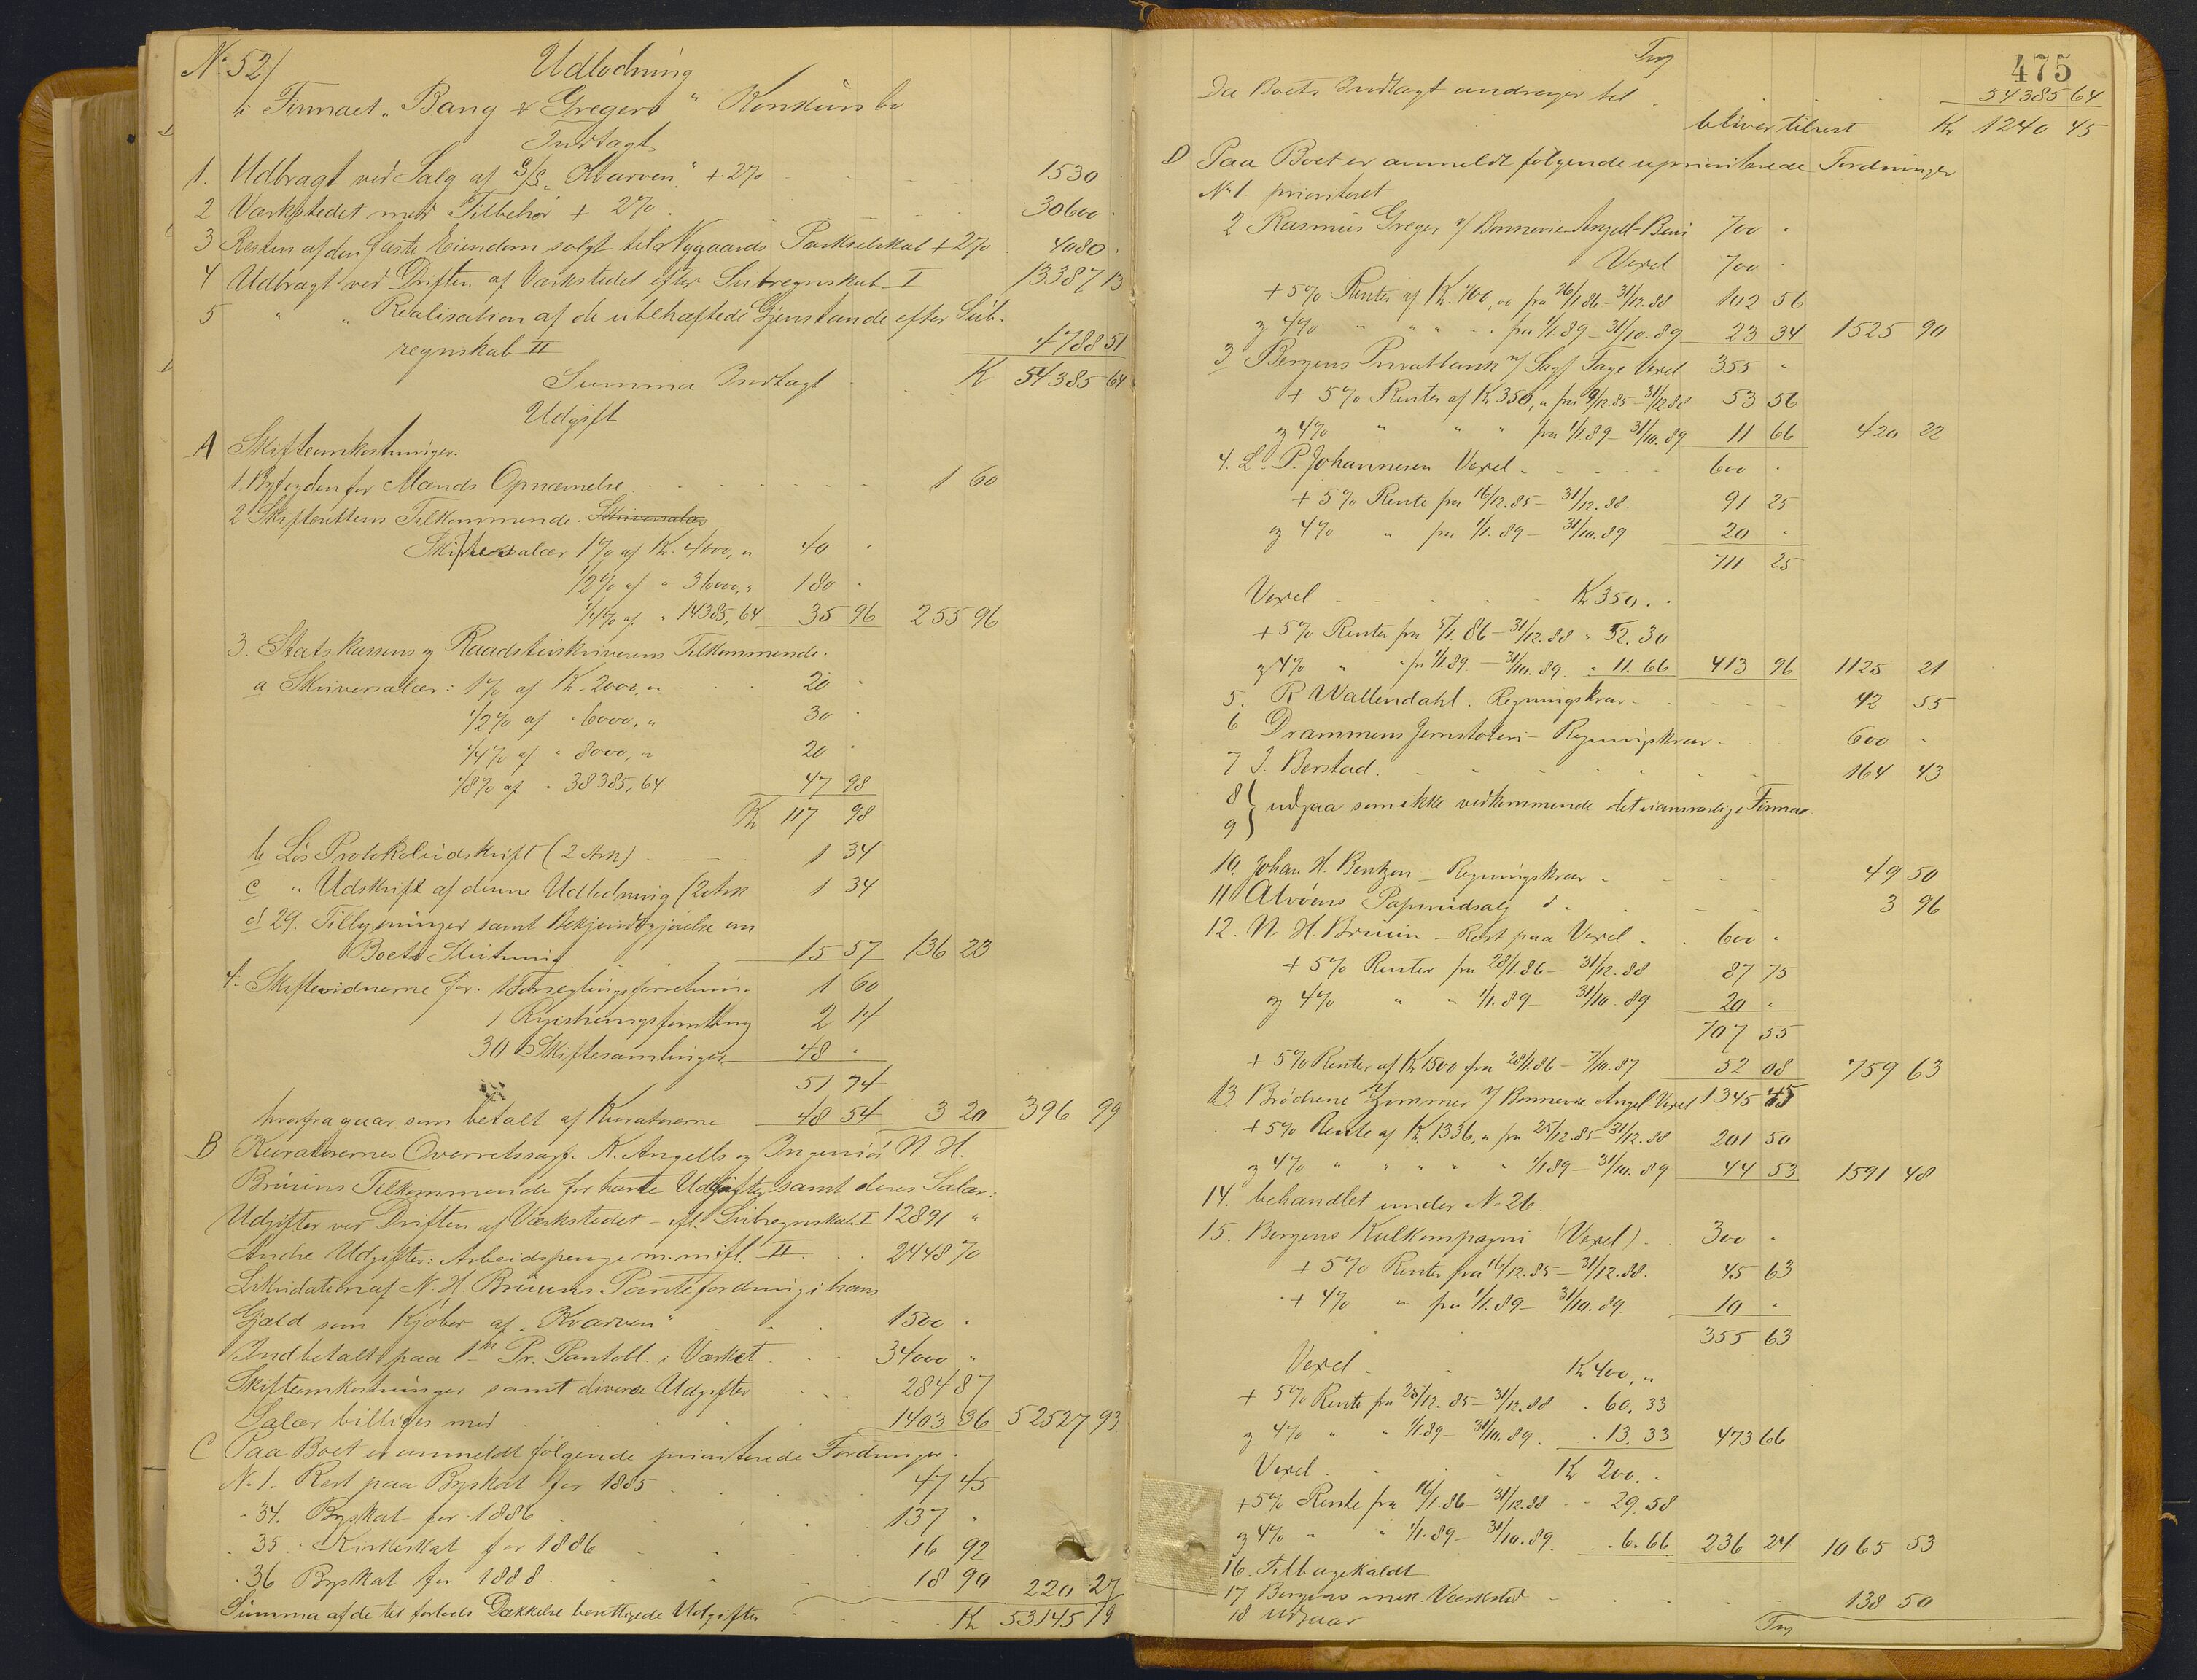 No 52/ Udlodning
i Firmaet „Bang & Gregers“ Konkursbo
Indtægt
1. Udbragt ved Salg af D/S „Kvarven“ + 2% 1530
2 Værkstedet med Tilbehør + 2% 30600
3 Resten af den faste Eiendom solgt til Nygaards Parkselskab + 2% 4080
4 Udbragt ved Driften af Værkstedet efter Subregnskab I 13387 13
5 " " Realisation af de ubehæftede Gjenstande efter Sub-
regnskab II 4788 51
Summa Indtægt K 54385 64
Udgift
A Skifteomkostninger:
1. Byfogden for Mænds Opnævnelse 1 60
2 Skifterettens Tilkommende. Skriversalær
Skiftesalær 1% af Kr. 4000,„ 40 "
1/2% af " 36000,„ 180 "
1/4% af " 14385,64 35 96 255 96
3. Statskassens og Raadstueskriverens Tilkommende.
a Skriversalær: 1% af Kr. 2000,„ 20 "
1/2% af " 6000,„ 30 "
1/4% af " 8000,„ 20 "
1/8% af " 38385,64 47 98
Kr 117 98
b Løs Protokoludskrift (2 Ark) 1 34
c " Udskrift af denne Udlodning (2 Ark 1 34
d 29. Tillysninger samt Bekjendtgjørelse om
Boets Slutning 15 57 136 23
4. Skiftevidnerne for: 1 Forseglingsforretning 1 60
1 Registreringsforretning 2 14
30 Skiftesamlinger 48 "
51 74
hvorfra gaar som betalt af Kuratorerne 48 54 3 20 396 99
B Kuratorernes Overretssagf. K. Angells og Ingeniør N. H.
Bruuns Tilkommende for havte Udgifter samt deres Salær:
Udgifter ved Driften af Værkstedet – ifl. Subregnskab I 12891 "
Andre Udgifter: Arbeidspenge m. m. ifl. II 2448 70
Likvidation af N. H. Bruuns Pantefordring i hans
Gjæld som Kjøber af „Kvarven“ 1500 "
Indbetalt paa 1ste Pr. Pantobl. i Værket 34000 "
Skifteomkostninger samt diverse Udgifter 284 87
Salær billiges med 1403 36 52527 93
C Paa Boet er anmeldt følgende prioriterede Fordringer.
No 1. Rest paa Byskat for 1885 47 45
" 34. Byskat for 1886 137 "
" 35. Kirkeskat for 1886 16 92
" 36 Byskat for 1888 18 90 220 27
Summa af de til forlods Dækkelse berettigede Udgifter Kr 53145 19
475
Trsp
54385 64
Da Boets Indtægt andrager til
bliver tilrest Kr 1240 45
D Paa Boet er anmeldt følgende uprioriterede Fordringer
No 1. prioriteret
2 Rasmus Greger v/ Bonnevie Angell-Bevis 700 "
Vexel 700 "
+ 5% Renter af Kr. 700,00 fra 26/1.86 – 31/12.88 102 56
og 4% " " " " fra 1/1.89 – 31/10.89 23 34 1525 90
3 Bergens Privatbank v/ Sagf Fage Vexel 355 "
+ 5% Renter af Kr 350,„ fra 9/12.85 – 31/12.88 53 56
og 4% " " " fra 1/1.89 – 31/10.89 11 66 420 22
4. L. P. Johannesen Vexel 600 "
+ 5% Rente fra 16/12.85 – 31/12.88. 91 25
og 4% " fra 1/1.89 – 31/10.89 20 "
711 25
Vexel Kr 350. "
+ 5% Renter fra 5/1.86 – 31/12.88 " 52.30
og 4% " " fra 1/1.89. – 31/10.89. " 11.66 413 96 1125 21
5. R Wallendahl. Regningskrav 42 55
6 Drammens Jernstøberi – Regningskrav 600 "
7 J. Berstad. 164 43
8
9 } udgaa som ikke vedkommende det iansvarlige Firma
10. Johan H. Bentzen – Regningskrav 49 50
11 Alvøens Papirudsalg d. 3 96
12. N. H. Bruun – Rest paa Vexel 600 "
+ 5% Renter fra 28/1.86 – 31/12.88 87 75
og 4% " " 1/1.89 – 31/10.89 20 "
707 55
+ 5% Renter af Kr 1500 fra 28/1.86 – 7/10.87 52 08 759 63
13 Brødrene Zimmer v/ Bonnevie Angell-Vexel 1345 45
+ 5% Rente af Kr. 1336,„ fra 25/12.85 – 31/12.88 201 50
og 4% " " " " " 1/1 89 – 31/10.89 44 53 1591 48
14. behandlet under No 26.
15. Bergens Kulkompagni (Vexel) 300 "
+ 5% Renter fra 16/12.85 – 31/12.88. 45 63
+ 4% " fra 1/1.89 – 31/10.89. 10 "
355 63
Vexel Kr 400,„
+ 5% Rente fra 25/12.85 – 31/12.88 " 60.33
og 4% " " 1/1.89 – 31/10.89. " 13.33 473 66
Vexel Kr 200. "
+ 5% Rente fra 16/1.86 – 31/12.88 " 29.58
og 4% " " 1/1.89 – 31/10.89. " 6.66 236 24 1065 53
16. Tilbagekaldt
17 Bergens mek. Værksted 138 50
18 udgaar
Trsp